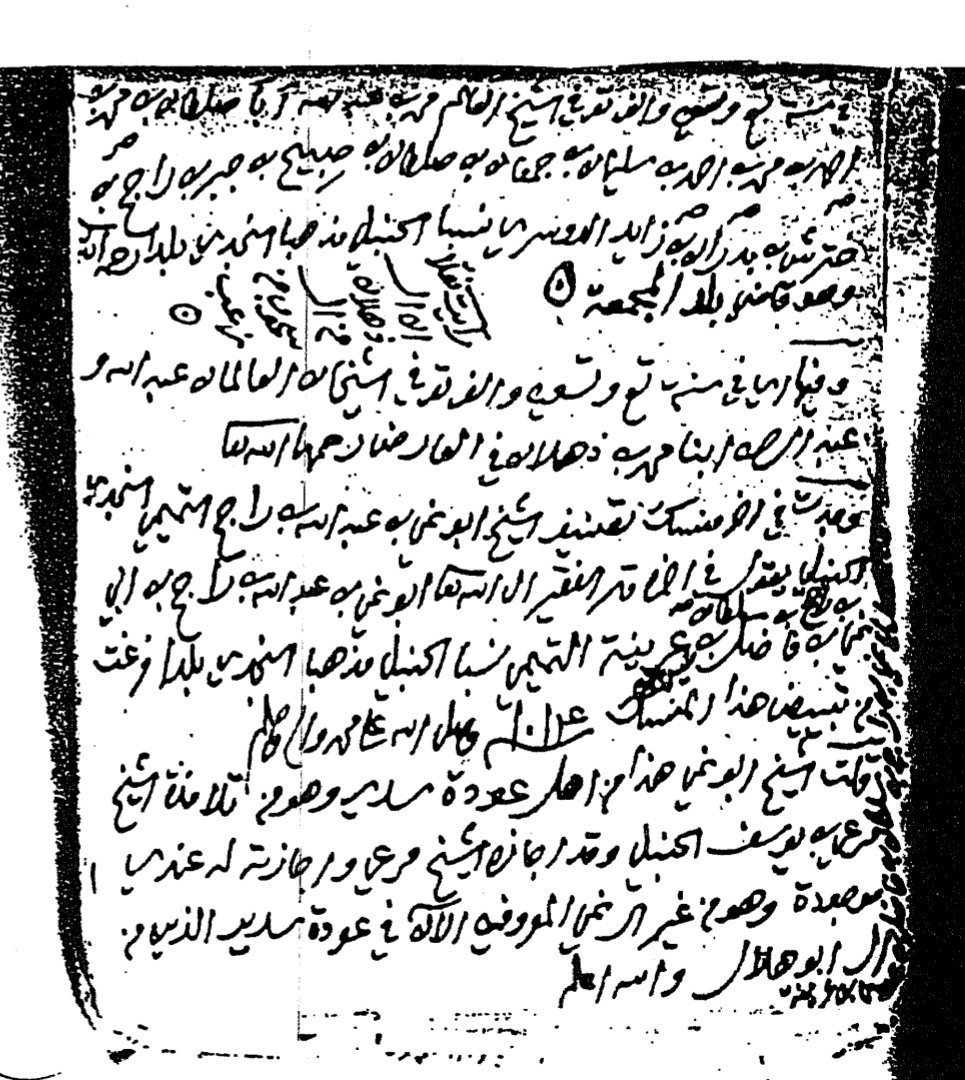 في سنة تسع وتسعين والف توفي الشيخ العالم محمد بن عبد الله ابا سلطان بن محمد بن
احمد بن محمد بن احمد بن سليمان بن جمعان بن سلطان بن صبيح بن جبر بن راجح بن
خترش بن بدران بن زايد الدوسري نسبا الحنبلي مذهبا النجدي بلدا رحمه الله
وهو قاضي بلد المجمعة
وفيها اي في سنة تسع وتسعين والف توفي الشيخان العالمان عبد الله و
عبد الرحمن ابنا محمد بن ذهلان في العارض رحمهما الله تعا
وجدت في اخر منسك تصنيف الشيخ ابو نمي بن عبد الله بن راجح التميمي النجدي
الحنبلي يقول في اخره قد الفقير الى الله تعا ابو نمي بن عبد الله بن راجح بن ابي
نمي بن راجح بن سلطان
بن فاضل بن عرينة التميمي نسبا الحنبلي مذهبا النجدي بلدا فرغت
من تبييض هذا المنسك وصلى الله على محمد واله وسلم
قلت الشيخ ابو نمي هذا من اهل عودة سدير وهو من تلامذة الشيخ
مرعي بن يوسف الحنبلي وقد اجازه الشيخ مرعي واجازته له عندي
موجودة وهو من غير ال نمي المعروفين الآن في عودة سدير الذين من
ال ابو هلال والله اعلم